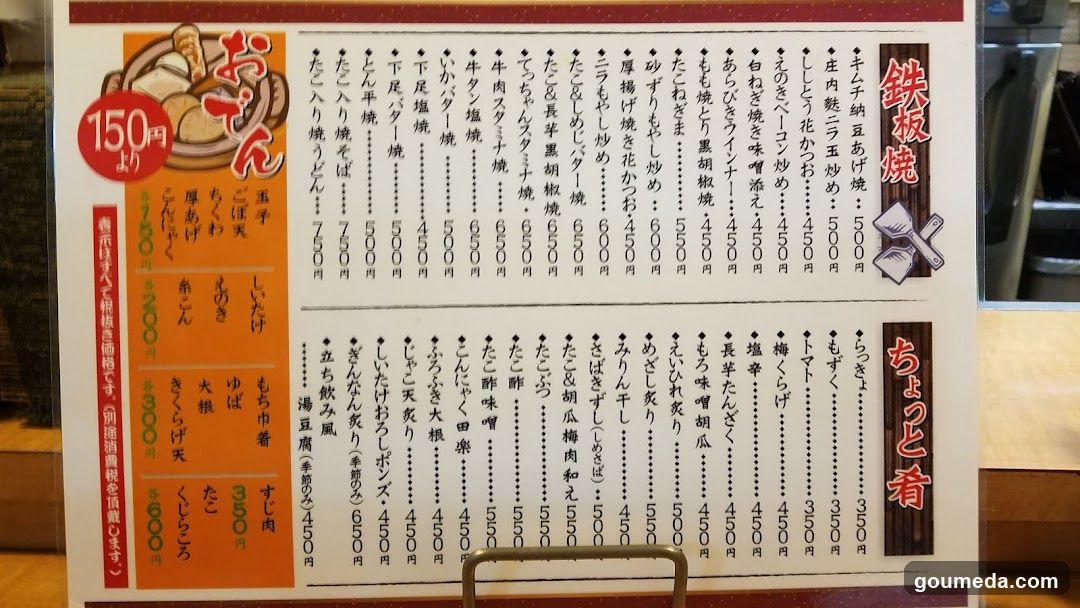 鉄板焼
◆キムチ納豆あげ焼‥500円
◆庄内麩ニラ玉炒め‥500円
◆ししとう花かつお‥450円
◆えのきベーコン炒め‥450円
◆白ねぎ焼き味噌添え‥450円
◆あらびきウインナー‥450円
◆もも焼とり黒胡椒焼‥450円
◆たこねぎま‥‥‥550円
◆砂ずりもやし炒め‥600円
◆厚揚げ焼き花かつお‥450円
◆ニラもやし炒め‥600円
◆たこ&しめじバター焼 650円
◆たこ&長芋黒胡椒焼 650円
◆てっちゃんスタミナ焼‥650円
◆牛肉スタミナ焼‥‥650円
◆牛タン塩焼‥‥650円
◆いかバター焼‥‥500円
◆下足塩焼‥‥450円
◆下足バター焼‥‥500円
◆とん平焼‥‥‥500円
◆たこ入り焼そば‥‥750円
◆たこ入り焼うどん‥‥750円
ちょっと肴
◆らっきょ‥‥‥350円
◆もずく‥‥‥350円
◆トマト‥‥‥350円
◆梅くらげ‥‥‥450円
◆塩辛‥‥‥450円
◆長芋たんざく‥‥450円
◆もろ味噌胡瓜‥‥450円
◆えいひれ炙り‥‥500円
◆めざし炙り‥‥550円
◆みりん干し‥‥450円
◆さばきずし(しめさば)‥500
◆たこ&胡瓜梅肉和え 550
◆たこぶつ‥‥‥550
◆たこ酢‥‥‥550
◆たこ酢味噌‥‥550
◆こんにゃく田楽‥‥450円
◆ふろふき大根‥‥450円
◆じゃこ天炙り‥‥450円
◆しいたけおろしポンズ‥450円
◆ぎんなん炙り(季節のみ) 650円
◆立ち飲み風
‥‥‥湯豆腐(季節のみ)450円
おでん
150円より
玉子
ごぼ天
ちくわ
厚あげ
こんにゃく
各150円
しいたけ
えのき
糸こん
各200円
もち巾着
ゆば
大根
きくらげ天
各300円
すじ肉
350円
たこ
くじらころ
各600円
表示はすべて税抜き価格です。(別途消費税を頂戴します。)
goumeda.com